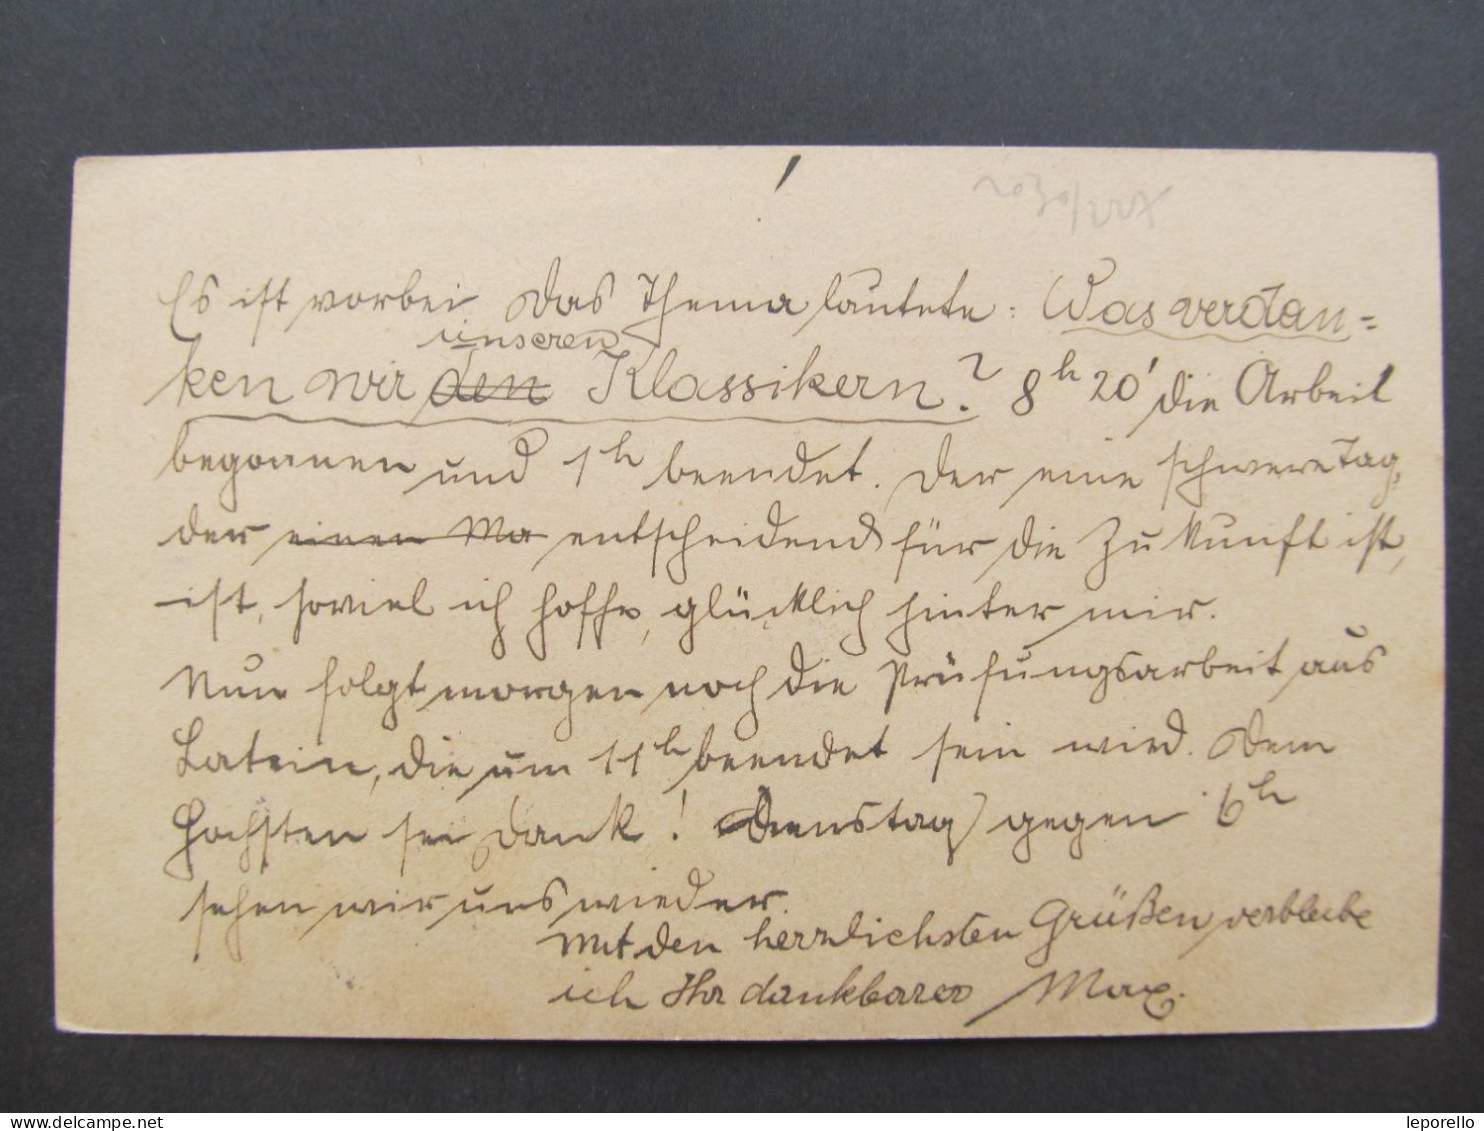 Es ist vorbei. Das Thema lautete: Was verdan-
unseren
ken wir den Klassikern? 8h 20' die Arbeit
begonnen und 1h beendet. Der eine schwere Tag,
der einen Ma entscheidend für die Zukunft ist,
ist, soviel ich hoffe, glücklich hinter mir.
Nun folgt morgen noch die Prüfungsarbeit aus
Latein, die um 11h beendet sein wird. Dem
Höchsten sei Dank! Dienstag gegen 6h
sehen wir uns wieder.
Mit den herzlichsten Grüßen verbleibe
ich Ihr dankbarer Max.
leporello